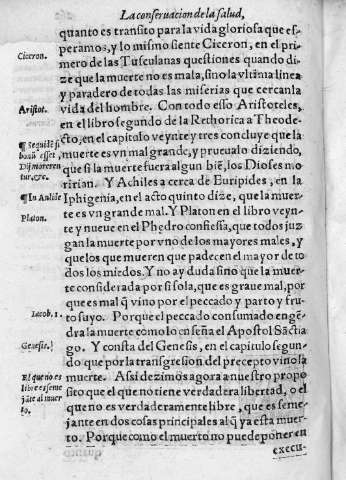 La conseruacion de la salud,
quanto es transito para la vida gloriosa que es
peramos, y lo mismo siente Ciceron, en el pri
mero de las Tusculanas questiones quando di
ze que la muerte no es mala, sino la vltima linea
y paradero de todas las miserias que cercan la
vida del hombre. Con todo esso Aristoteles,
en el libro segundo de la Rethorica a Theode
cto, en el capitulo veynte y tres concluye que la
muerte es vn mal grande, y prueualo diziendo,
que si la muerte fuera algun biẽ, los Dioses mo
ririan. Y Achiles a cerca de Euripides, en la
Iphigenia, en el acto quinto dize, que la muer
te es vn grande mal. Y Platon en el libro veyn
te y nueue en el Phedro confiessa, que todos juz
gan la muerte por vno de los mayores males, y
que los que mueren que padecen el mayor de to
dos los miedos. Y no ay duda sino que la muer
te considerada por si sola, que es graue mal, por
que es mal q̃ vino por el peccado y parto y fru
to suyo. Porque el peccado consumado engẽ
dra la muerte como lo enseña el Apostol Sãctia
go. Y consta del Genesis, en el capitulo segun
do que por la transgression del precepto vino la
muerte. Assi dezimos agora a nuestro propo
sito que el que no tiene verdadera libertad, o el
que no es verdaderamente libre, que es seme
jante en dos cosas principales al q̃ ya esta muer
to. Porque como el muerto no puede poner en
execu-
Ciceron.
Aristot.
¶ Sequile si
bonũ esset
Dij moreren
tur, &c.
¶ In Aulide
Platon.
Iacob. 1.
Genesis.
El que no es
libre es seme
jãte al muer
to.